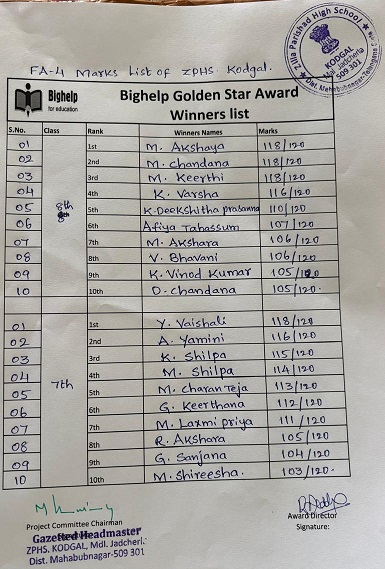 Zilla Parishad High School
KODGAL
Mdl. Jadcherla
509 301
Dist. Mahabubnagar-Telangana
FA-4 Marks List of ZPHS. Kodgal.
Bighelp
for education
Bighelp Golden Star Award
Winners list
S.No. Class Rank Winners Names Marks
01 1st M. Akshaya 118/120
02 2nd M. chandana 118/120
03 3rd M. Keerthi 118/120
04 4th K. Varsha 116/120
05 8th 5th K. Deekshitha prasanna 110/120
06 6th Afiya Tahassum 107/120
07 7th M. Akshara 106/120
08 8th V. Bhavani 106/120
09 9th K. Vinod Kumar 105/120
10 10th D. chandana 105/120.
01 1st Y. Vaishali 118/120
02 2nd A. Yamini 116/120
03 3rd K. Shilpa 115/120
04 4th M. Shilpa 114/120
05 7th 5th M. charan Teja 113/120
06 6th G. Keerthana 112/120
07 7th M. Laxmi priya 111/120
08 8th R. Akshara 105/120
09 9th G. Sanjana 104/120
10 10th M. Shireesha. 103/120.
Project Committee Chairman
Gazetted Headmaster
ZPHS. KODGAL, Mdl. Jadcherl.
Dist. Mahabubnagar-509 301
Award Director
Signature: